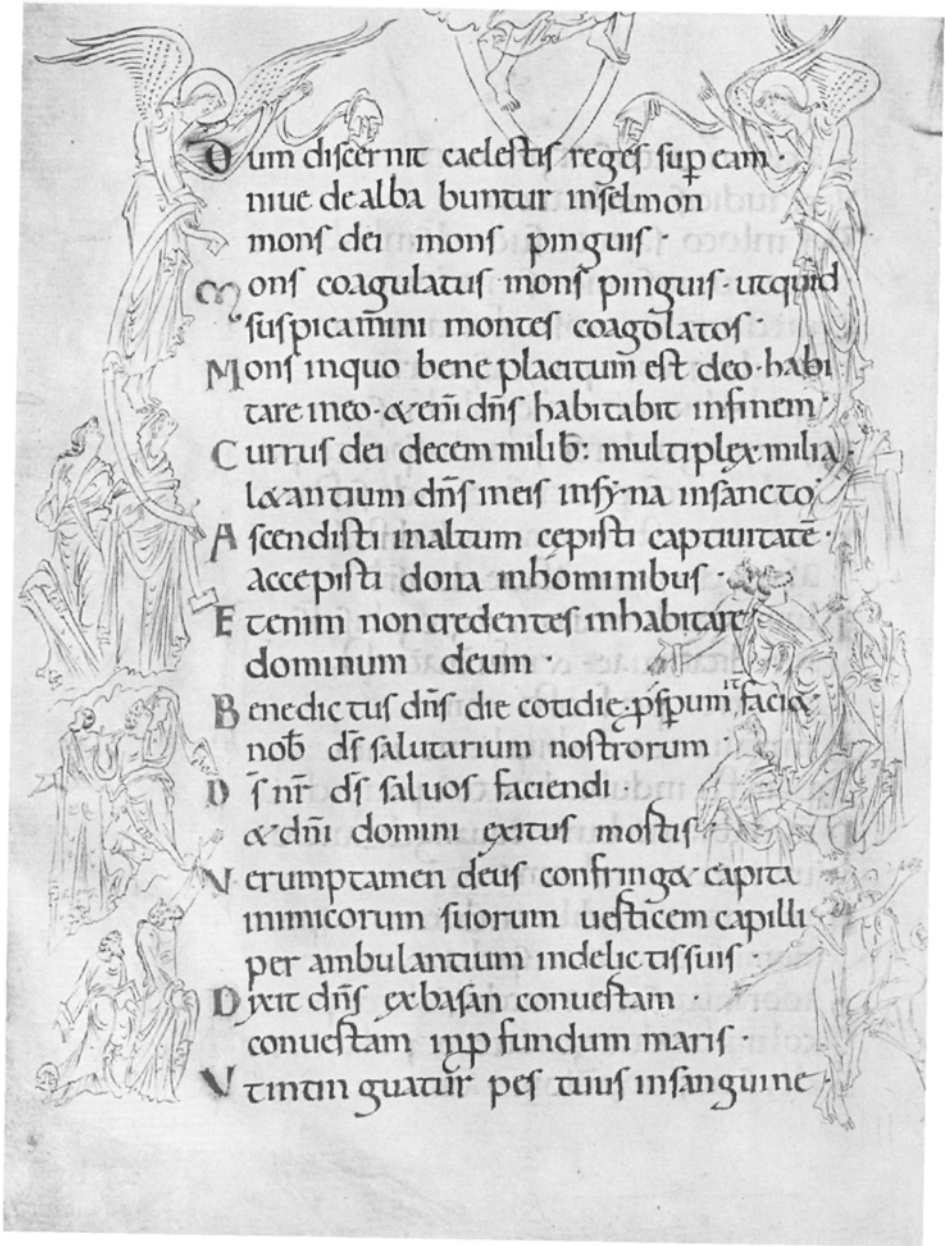 Dum discernit caelestis reges sup eam ·
niue dealbabuntur inselmon
mons dei mons pinguis ·
Mons coagulatus mons pinguis · utquid
suspicamini montes coagolatos ·
Mons inquo bene placitum est deo · habi
tare ineo · & eni dns habitabit infinem
Currus dei decem milib: multiplex · milia
l&antium dns ineis insyna insancto
Ascendisti inaltum cepisti captiuitatē ·
accepisti dona inhominibus ·
Etenim noncredentes inhabitare
dominum deum ·
Benedictus dns die cotidie · pspum it faci&
nob ds salutarium nostrorum ·
Ds nr ds saluos faciendi ·
& dni domini exitus mostis
Verumptamen deus confring& capita
inimicorum suorum uesticem capilli
per ambulantium indelictissuis ·
Dixit dns exbasan conuestam ·
conuestam inp fundum maris ·
Vtintinguatur pes tuus insanguine